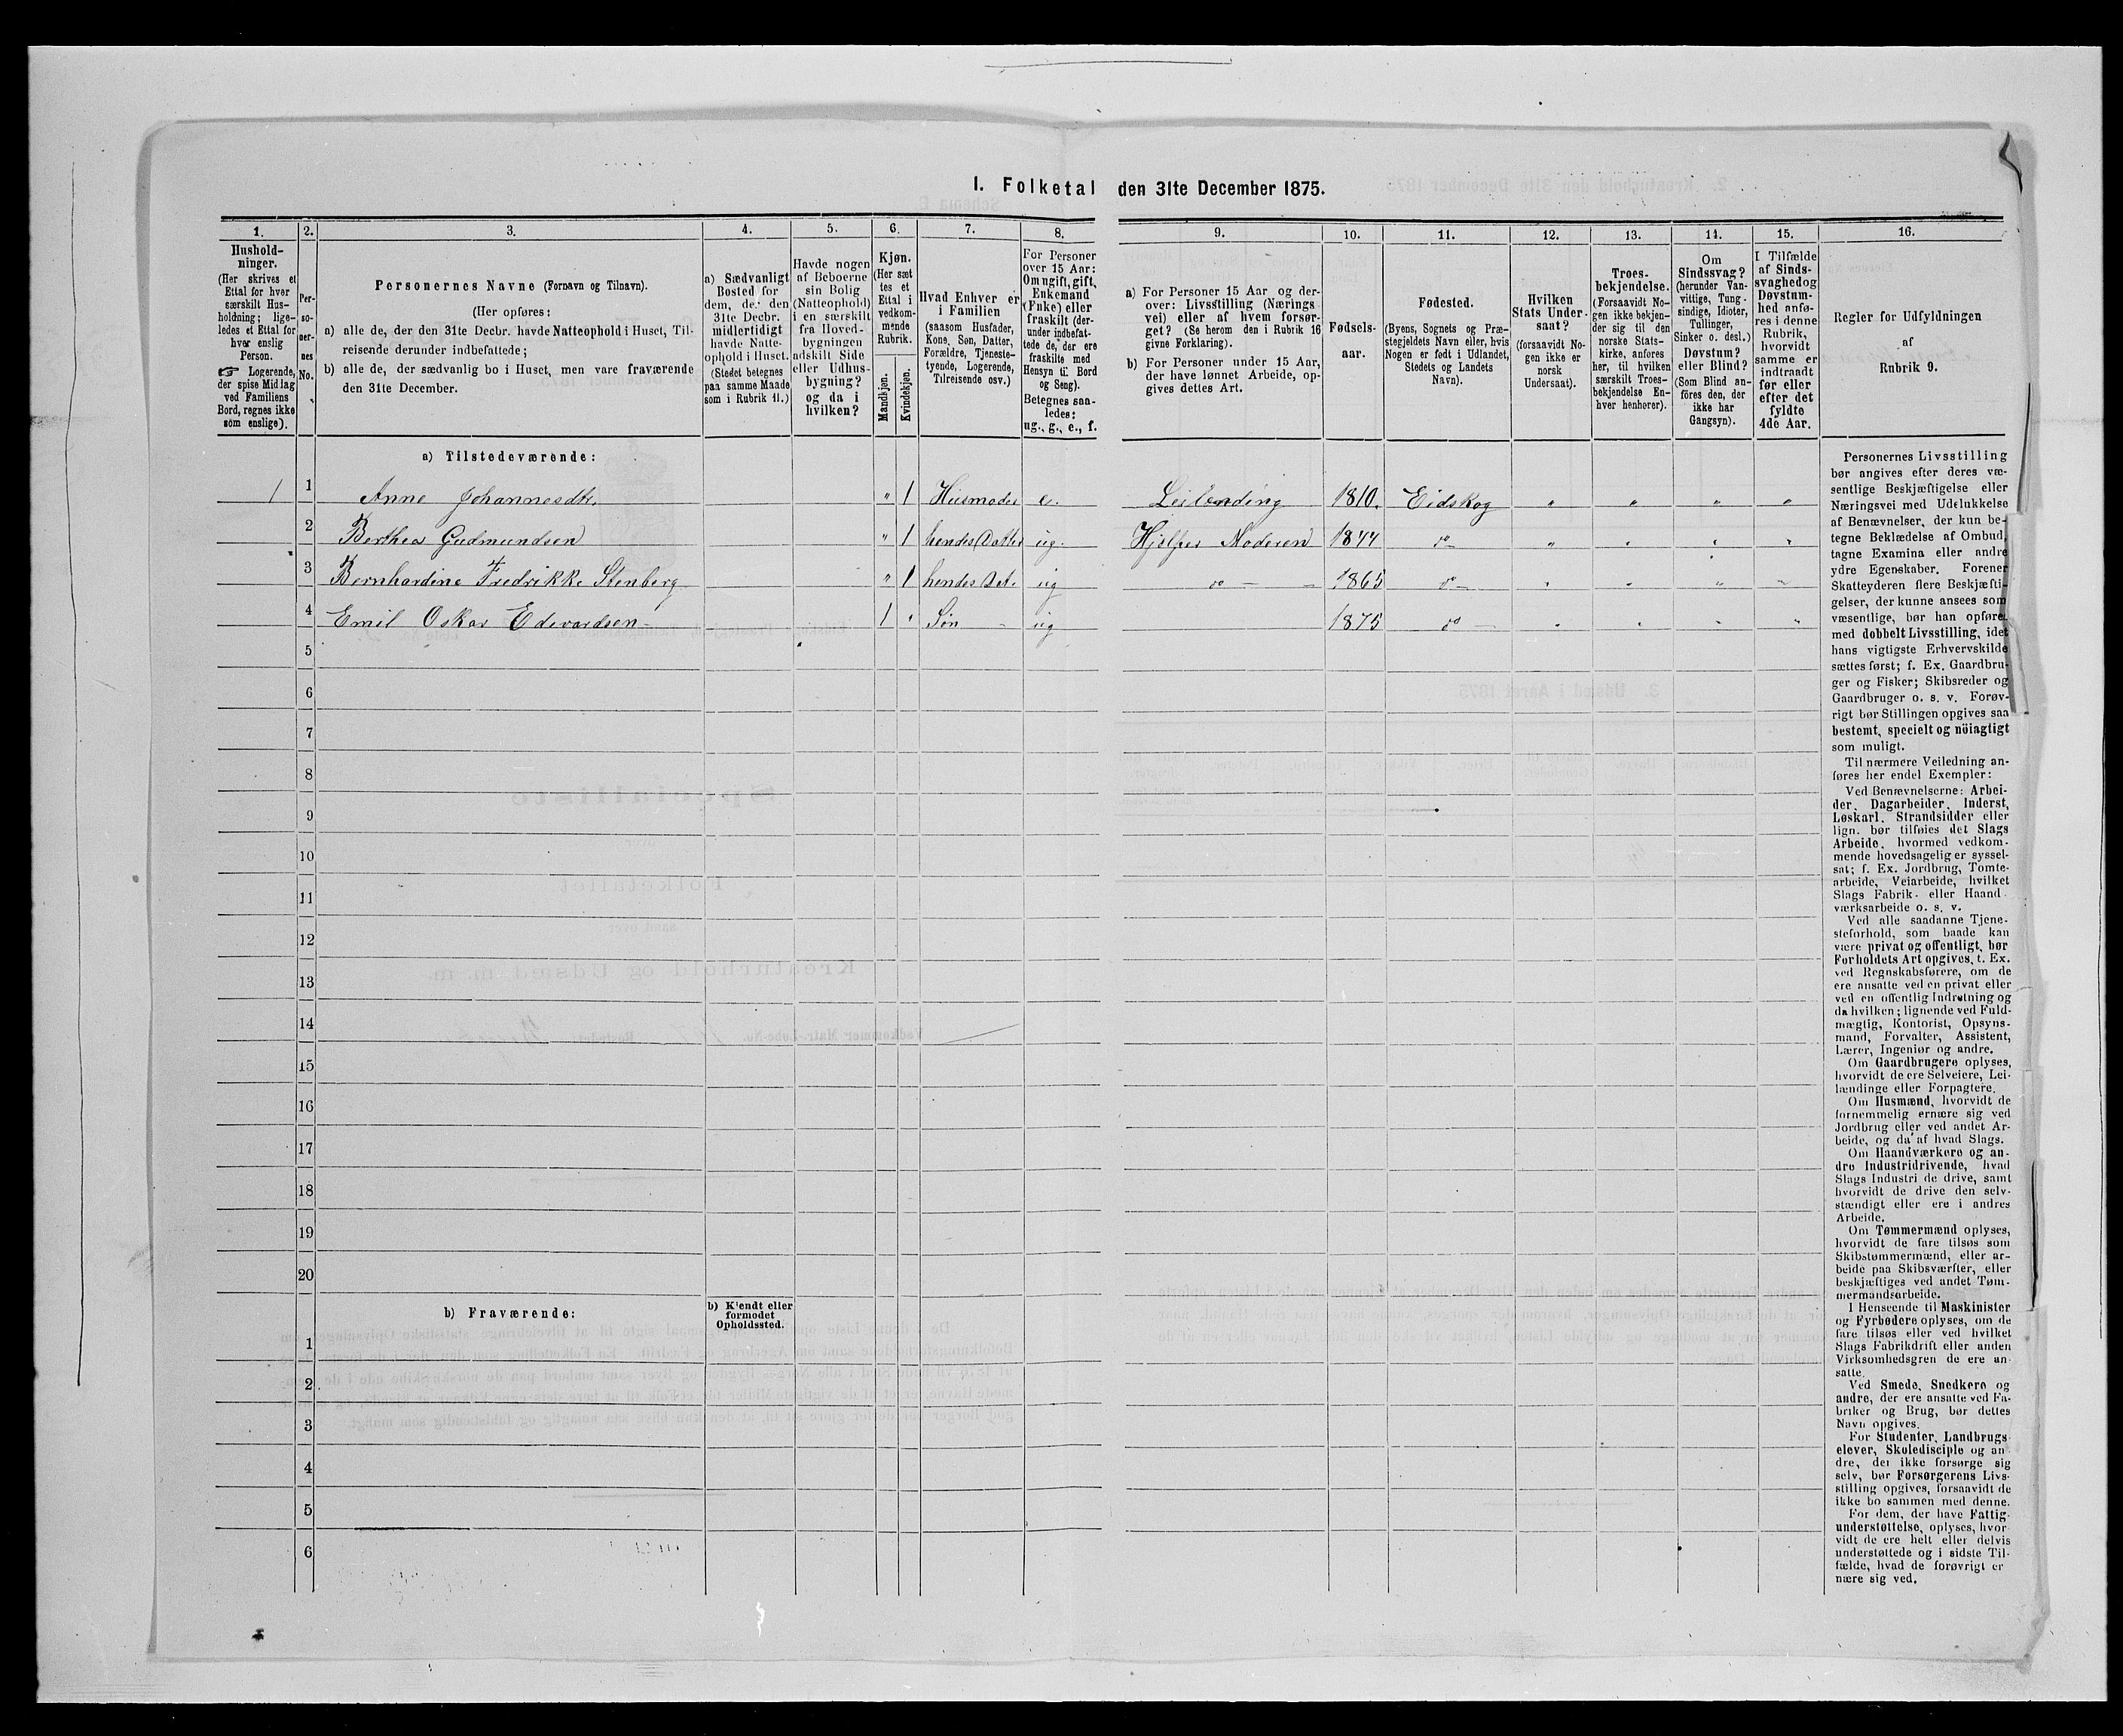 1. Folketal den 31te December 1875.
1. 2. 3. 4. 5. 6. 7. 8. 9. 10. 11. 12. 13. 14. 15. 16.
Hushold-
ninger.
(Her skrives et
Ettal for hver
særskilt Hus-
holdning; lige-
ledes et Ettal for
hver enslig
Person.
☞ Logerende,
der spise Middag
ved Familiens
Bord, regnes ikke
som enslige).
Per-
so-
ner-
nes
No.
Personernes Navne (Fornavn og Tilnavn).
(Her opføres:
a) alle de, der den 31te Decbr. havde Natteophold i Huset, Til-
reisende derunder indbefattede;
b) alle de, der sædvanlig bo i Huset, men vare fraværende
den 31te December.
a) Sædvanligt
Bosted for
dem, der den
31te Decbr.
midlertidigt
havde Natte-
ophold i Huset.
(Stedet betegnes
paa samme Maade
som i Rubrik 11.)
Havde nogen
af Beboerne
sin Bolig
(Natteophold)
i en særskilt
fra Hoved-
bygningen
adskilt Side
eller Udhus-
bygning?
og da i
hvilken?
Kjøn.
(Her sæt
tes et
Ettal i
vedkom-
mende
Rubrik.
Mandkjøn.
Kvindekjøn.
Hvad Enhver er
i Familien
(saasom Husfader,
Kone, Søn, Datter,
Forældre, Tjeneste-
tyende, Logerende,
Tilreisende osv.)
For Personer
over 15 Aar:
Om ugift, gift,
Enkemand
(Enke) eller
fraskilt (der-
under indbefat-
tede de, der ere
fraskilte med
Hensyn til Bord
og Seng).
Betegnes saa-
ledes:
ug., g., e., f.
a) For Personer 15 Aar og der-
over: Livsstilling (Nærings
vei) eller af hvem forsør-
get? (Se herom den i Rubrik 16
givne Forklaring).
b) For Personer under 15 Aar,
der have lønnet Arbeide, op-
gives dettes Art.
Fødsels-
aar.
Fødested.
(Byens, Sognets og Præ-
stegjeldets Navn eller, hvis
Nogen er født i Udlandet,
Stedets og Landets
Navn).
Hvilken
Stats Under-
saat?
(forsaavidt No-
gen ikke er
norsk
Undersaat).
Troes-
bekjendelse.
(Forsaavidt No-
gen ikke bekjen-
der sig til den
norske Stats-
kirke, anføres
her, til hvilken
særskilt Troes-
bekjendelse En-
hver henhører).
Om
Sindssvag?
(herunder Van-
vittige, Tung-
sindige, Idioter,
Tullinger,
Sinker o. desl.)
Døvstum?
eller Blind?
(Som Blind an-
føres den, der
ikke har
Gangsyn).
I Tilfælde
af Sinds-
svaghed og
Døvstum-
hed anfø-
res i denne
Rubrik,
hvorvidt
samme er
indtraadt
før eller
efter det
fyldte
4de Aar.
Regler for Udfyldningen
af
Rubrik 9.
a) Tilstedeværende:
1 1 Anne Johannesdtr. " 1 Husmoder e. Leilending 1810. Eidskog " " " "
2 Berthea Gudmundsen " 1 hendes Datter ug. Hjelper Moderen 1844 do " " " "
3 Bernhardine Fredrikke Stenberg " 1 hendes Dat. ug do 1865 do " " " "
4 Emil Oskar Edevardsen 1 " Søn ug 1875 do " " " "
5
6
7
8
9
10
11
12
13
14
15
16
17
18
19
20
b) Fraværende:
b) Kjendt eller
formodet
Opholdssted.
1
2
3
4
5
6
Personernes Livsstilling
bør angives efter deres væ-
sentlige Beskjæftigelse eller
Næringsvei med Udelukkelse
af Benævnelser, der kun be-
tegne Beklædelse af Ombud,
tagne Examina eller andre
ydre Egenskaber. Forener
Skatteyderen flere Beskjæfti-
gelser, der kunne ansees som
væsentlige, bør han opføres
med dobbelt Livsstilling, idet
hans vigtigste Erhvervskilde
sættes først; f. Ex. Gaardbru-
ger og Fisker; Skibsreder og
Gaardbruger o. s. v. Forøv-
rigt bør Stillingen opgives saa
bestemt, specielt og nöiagtigt
som muligt.
Til nærmere Veiledning an-
føres her endel Exempler:
Ved Benævnelserne: Arbei-
der, Dagarbeider, Inderst,
Løskarl, Strandsidder eller
lign. bør tilføies det Slags
Arbeide, hvormed vedkom-
mende hovedsagelig er syssel-
sat; f. Ex. Jordbrug, Tomte-
arbeide, Veiarbeide, hvilket
Slags Fabrik- eller Haand-
værksarbeide o. s. v.
Ved alle saadanne Tjene-
steforhold, som baade kan
være privat og offentligt, bør
Forholdets Art opgives, t. Ex.
ved Regnskabsførere, om de
ere ansatte ved en privat eller
ved en offentlig Indretning og
da hvilken; lignende ved Fuld-
mægtig, Kontorist, Opsyns-
mand, Forvalter, Assistent,
Lærer, Ingeniør og andre.
Om Gaardbrugere oplyses,
hvorvidt de ere Selveiere, Lei-
lændinge eller Forpagtere.
Om Husmænd, hvorvidt de
fornemmelig ernære sig ved
Jordbrug eller ved andet Ar-
beide, og da af hvad Slags.
Om Haandværkere og an-
dre Industridrivende, hvad
Slags Industri de drive, samt
hvorvidt de drive den selv-
stændigt eller ere i andres
Arbeide.
Om Tømmermænd oplyses,
hvorvidt de fare tilsøs som
Skibstømmermænd, eller ar-
beide paa Skibsværfter, eller
beskjæftiges ved andet Tøm-
mermandsarbeide.
I Henseende til Maskinister
og Fyrbødere oplyses, om de
fare tilsøs eller ved hvilket
Slags Fabrikdrift eller anden
Virksomhedsgren de ere an-
satte.
Ved Smede, Snedkere og
andre, der ere ansatte ved Fa-
briker og Brug, bør dettes
Navn opgives.
For Studenter, Landbrugs-
elever, Skoledisciple og an-
dre, der ikke forsørge sig
selv, bør Forsørgerens Livs-
stilling opgives, forsaavidt de
ikke bo sammen med denne.
For dem, der have Fattig-
understøttelse, oplyses, hvor-
vidt de ere helt eller delvis
understøttede og i sidste Til-
fælde, hvad de forøvrigt er
nære sig ved.